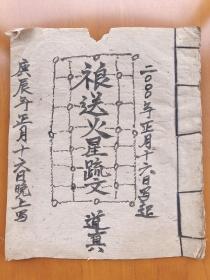 二000年正月十六日写起
禳送火星疏文
道真
庚辰年正月十六日晚上写